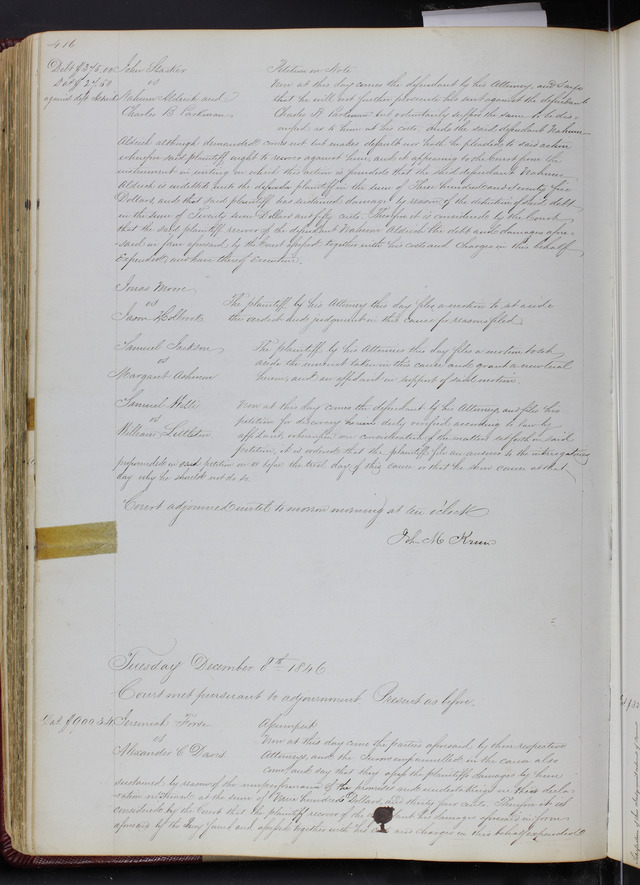 416
Debt $375.00 John
Dam $27.50 vs
against deft Aldrich Nahum Aldrich and
Charles B
Petition on Note
Now at this day comes the defendant by his Attorney, and says
that he will not further prosecute his suit against the defendant
Charles B but voluntarily suffers the same to be dis-
missed as to him at his costs. And the said defendant Nahum
Aldrich although demanded comes not but makes default nor hath he pleaded to said action
wherefore said plaintiff ought to recover against him, and it appearing to the Court from the
instrument in writing on which this action is founded that the said defendant Nahum
Aldrich is indebted unto the plaintiff in the sum of Three hundred and seventy five
Dollars, and that said plaintiff has sustained damages by reason of the detention of said debt
in the sum of Twenty seven Dollars and fifty cents. Therefore it is considered by the Court
that the said plaintiff recover of the defendant Nahum Aldrich the debt and damages afore-
said in form aforesaid by the Court assessed together with his costs and charges in this behalf
expended, and have thereof execution.
Jonas Moore
vs
Jason Holbrook
The plaintiff by his Attorney this day files a motion to set aside
the verdict and judgment in this cause for reasons filed.
Samuel Jackson
vs
Margaret
The plaintiff by his Attornies this day files a motion to set
aside the nonsuit taken in this cause and grant a new trial
herein, and an affidavit in support of said motion.
Samuel
vs
William Littleton
Now at this day comes the defendant by his Attorney, and files his
petition for discovery herein duly verified according to law by
affidavit, whereupon on consideration of the matters set forth in said
petition, it is ordered that the plaintiff file an answer to the interrogatories
propounded in said petition on or before the trial day of this cause or that he shew cause at that
day why he should not do so.
Court adjourned until tomorrow morning at ten o'clock
John M Krum
Tuesday December 8th 1846
Court met pursuant to adjournment Present as before.
Dam $900.34 Jeremiah
vs
Alexander C Davis
Assumpsit
Now at this day come the parties aforesaid by their respective
Attorneys, and the Jurors empannelled in the cause also
come and say that they assess the plaintiffs damages by him
sustained by reason of the nonperformance of the promises and undertakings in the decla-
ration mentioned at the sum of Nine hundred Dollars and thirty four cents. Therefore it is
considered by the Court that the plaintiff recover of the defendant his damages aforesaid in form
aforesaid by the Jury found and assessed together with his costs and charges in this behalf expended